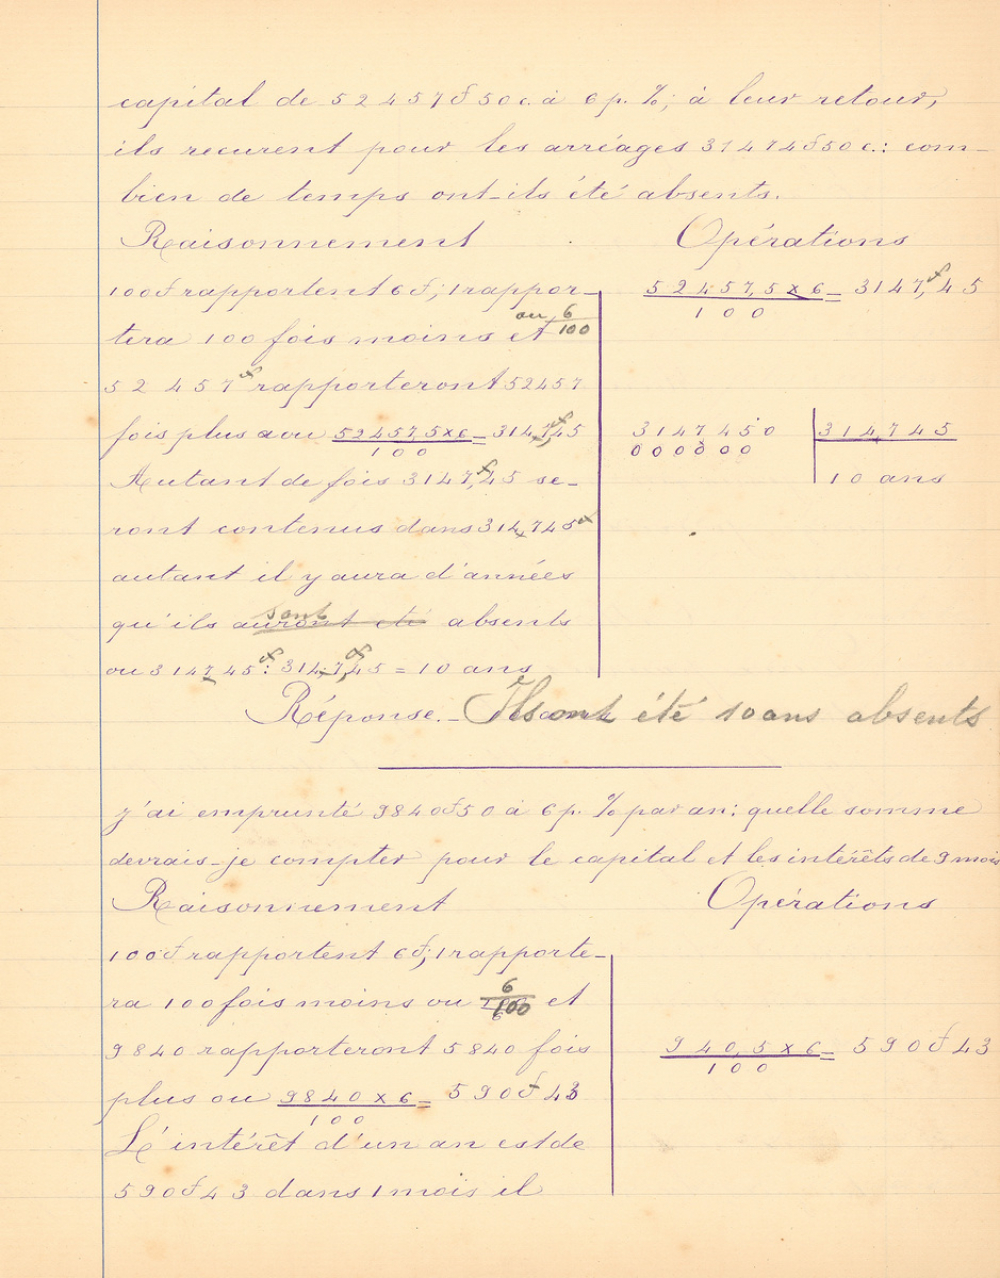 capital de 52457f50c. à 6 p. %; à leur retour,
ils recurent pour les arriéages 31474f50c.: com-
bien de temps ont-ils été absents.
Raisonnement Opérations
100f rapportent 6f; 1 rappor-
tera 100 fois moins et ou 6/100
52457f rapporteront 52457
fois plus ou 52457,5x6/100 = 3147,45
Autant de fois 3147,f45 se-
ront contenus dans 314745f
autant il y aura d'années
qu'ils auront été sont absents
ou 314745f : 3147,f45 = 10 ans
52457,5 x 6/100 = 3147,f45
3147450 | 314745
000000 | 10 ans
Réponse._ Ils ont été 10 ans absents
j'ai emprunté 9840f50 à 6 p. % par an: quelle somme
devrais-je compter pour le capital et les intérêts de 9 mois
Raisonnement Opérations
100f rapportent 6f; 1 rapporte-
ra 100 fois moins ou 6/100 et
9840 rapporteront 5840 fois
plus ou 9840 x 6/100 = 590f43
L'intérêt d'un an est de
590f43 dans 1 mois il
940,5 x 6/100 = 590f43